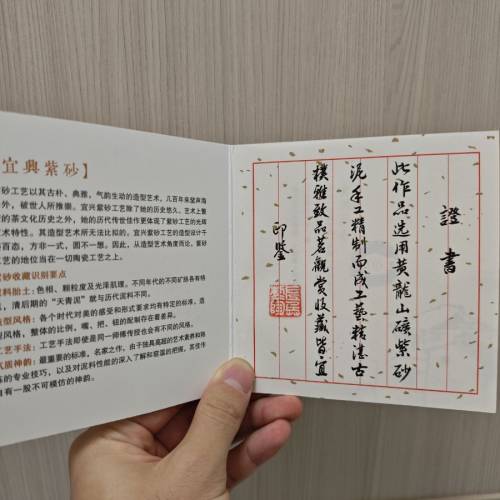 宜興紫砂】
砂工艺以其古朴，典雅，气韵生动的造型艺术，几百年来望声海
外，被世人所推崇。宜兴紫砂工艺除了她的历史悠久。艺术上繁
的茶文化历史之外，她的历代传世佳作更体现了紫砂工艺的光辉
艺术特性。其造型艺术所无法比拟的。宜兴紫砂工艺的造型设计千
百态，方非一式，圆不一想。因此，从造型艺术角度而论，紫砂
艺的地位当在一切陶瓷工艺之上。
紫砂收藏识别要点
料胎土：色相、颗粒度及光泽肌理。不同年代的不同矿脉各有特
，清后期的“天青泥”就与历代泥料不同。
造型风格：各个时代对美的感受和形式要求均有特定的标准。造
型风格，整体的比例、嘴、把、钮的配制存在着差异。
工艺手法：工艺手法即使是同一师傅传授也会有不同的风格。
气质神韵：最重要的标准，名家之作，由于独具高超的艺术素养和熟
练的专业技巧，以及对泥料性能的深入了解和容器的把握，其佳作
自有一股不可模仿的神韵。
證書
此作品选用黄龍山礦紫砂
泥手工精制而成工藝精湛古
樸雅致品茗觀赏收藏皆宜
印鉴